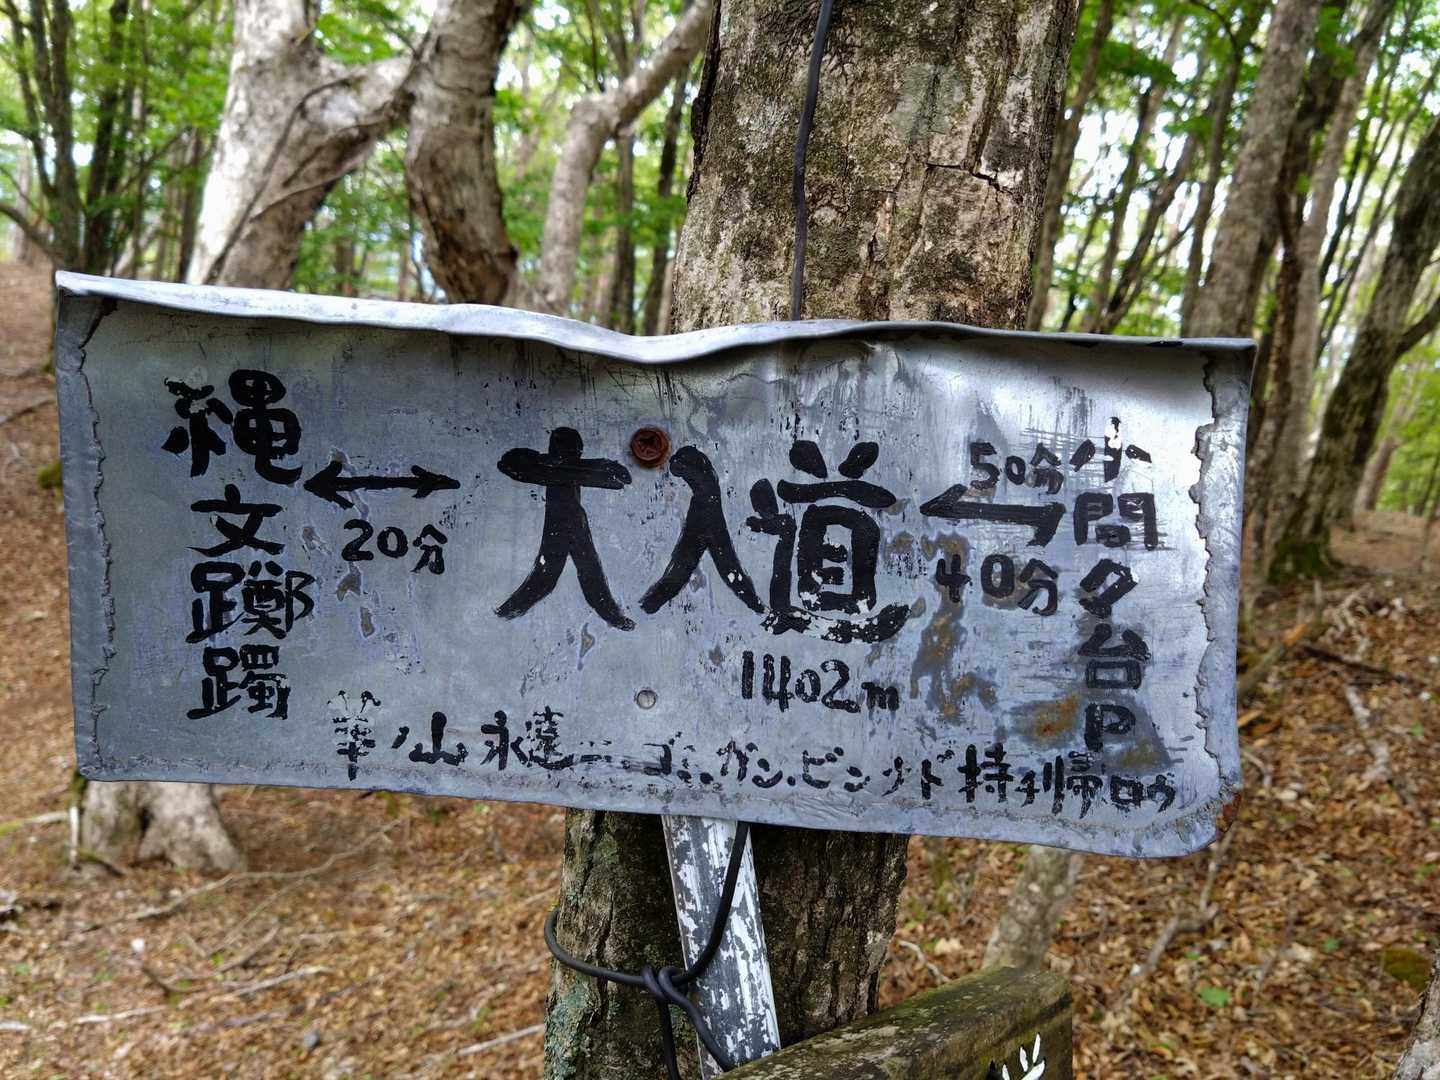 縄文躑躅
20分
大入道
1402m
50分
40分
小間々台P
山
ゴミ.カン.ビンナド持チ帰ロウ